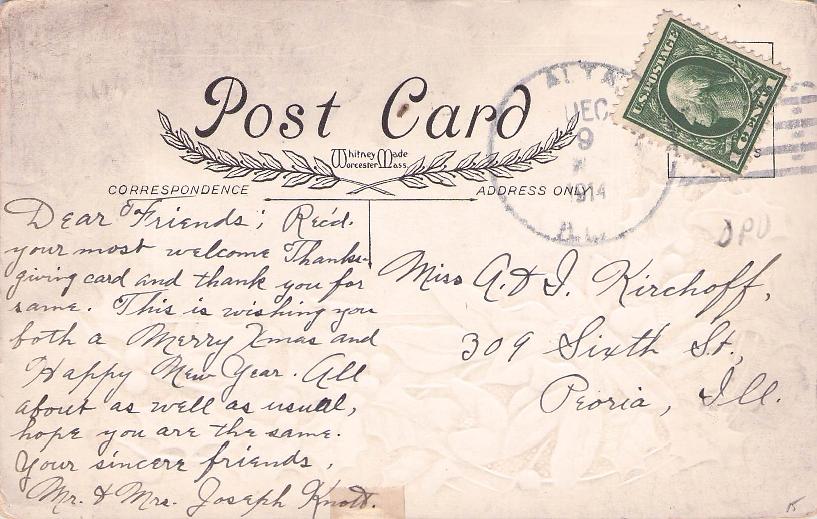 Post Card
Whitney Made
Worcester Mass.
CORRESPONDENCE
ADDRESS ONLY
DEC
9
1914
ILL.
U.S. POSTAGE
1 CENT 1
S
DPO
Dear Friends; Rec'd.
your most welcome Thanks-
giving card and thank you for
same. This is wishing you
both a Merry Xmas and
Happy New Year. All
about as well as usual,
hope you are the same.
Your sincere friends,
Mr. & Mrs. Joseph Knott.
Miss A. & I. Kirchoff,
309 Sixth St.,
Peoria, Ill.